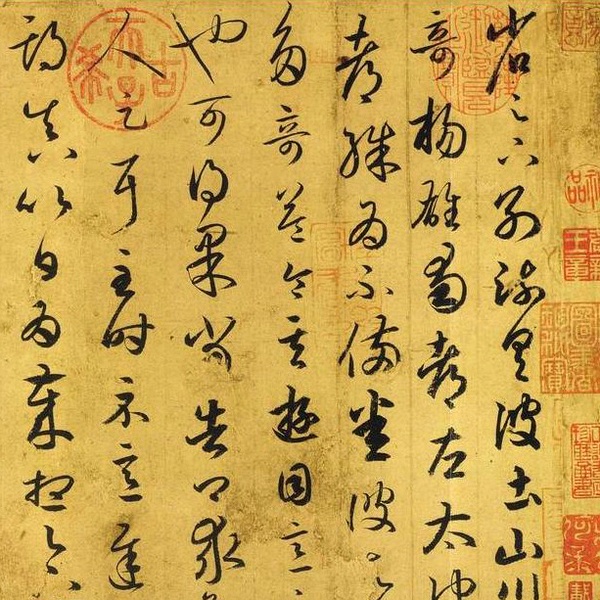 省足下別疏具彼土山川
奇楊雄蜀都左太沖
都殊為不備悉彼
多奇益令其遊目意
也可得果當告卿求
人足耳至時示意遲
期真以日為歲想足下